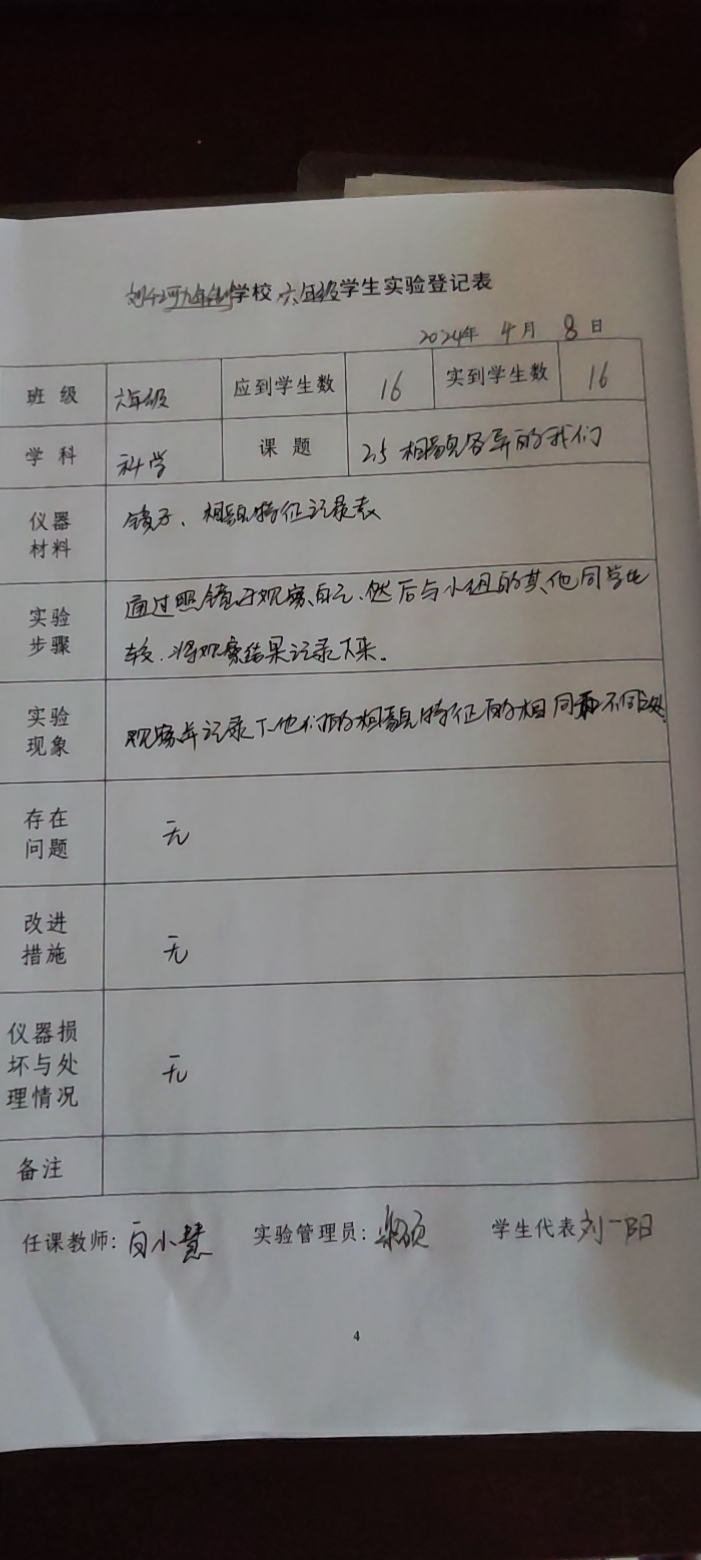 刘千河九年制学校 六年级学生实验登记表
2024年 4月 8日
班 级 六年级 应到学生数 16 实到学生数 16
学 科 科学 课 题 2.5 相貌各异的我们
仪器 镜子、相貌特征记录表
材料
实验 通过照镜子观察自己、然后与小组的其他同学比
步骤 较、将观察结果记录下来。
实验 观察并记录下他们的相貌特征的相同和不同处
现象
存在 无
问题
改进 无
措施
仪器损
坏与处 无
理情况
备注
任课教师: 白小慧 实验管理员: 学生代表 刘一阳
4